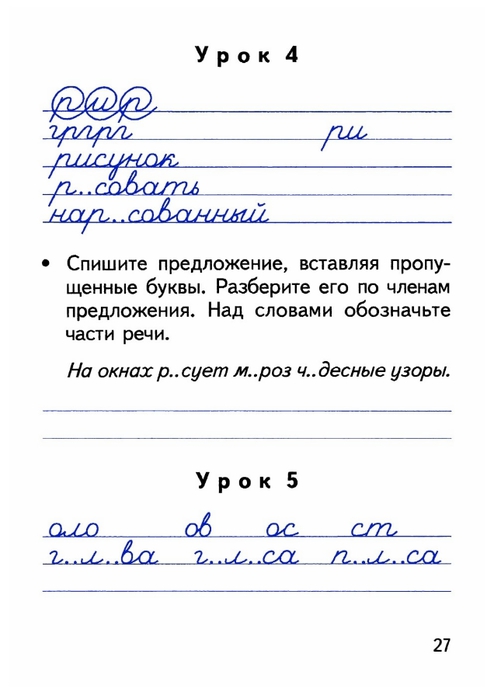 Урок 4
ршр
гргргрг ри
рисунок
р..совать
нар..сованный
• Спишите предложение, вставляя пропу-
щенные буквы. Разберите его по членам
предложения. Над словами обозначьте
части речи.
На окнах р..сует м..роз ч..десные узоры.
Урок 5
оло ов ос ст
г..л..ва г..л..са п..л..са
27